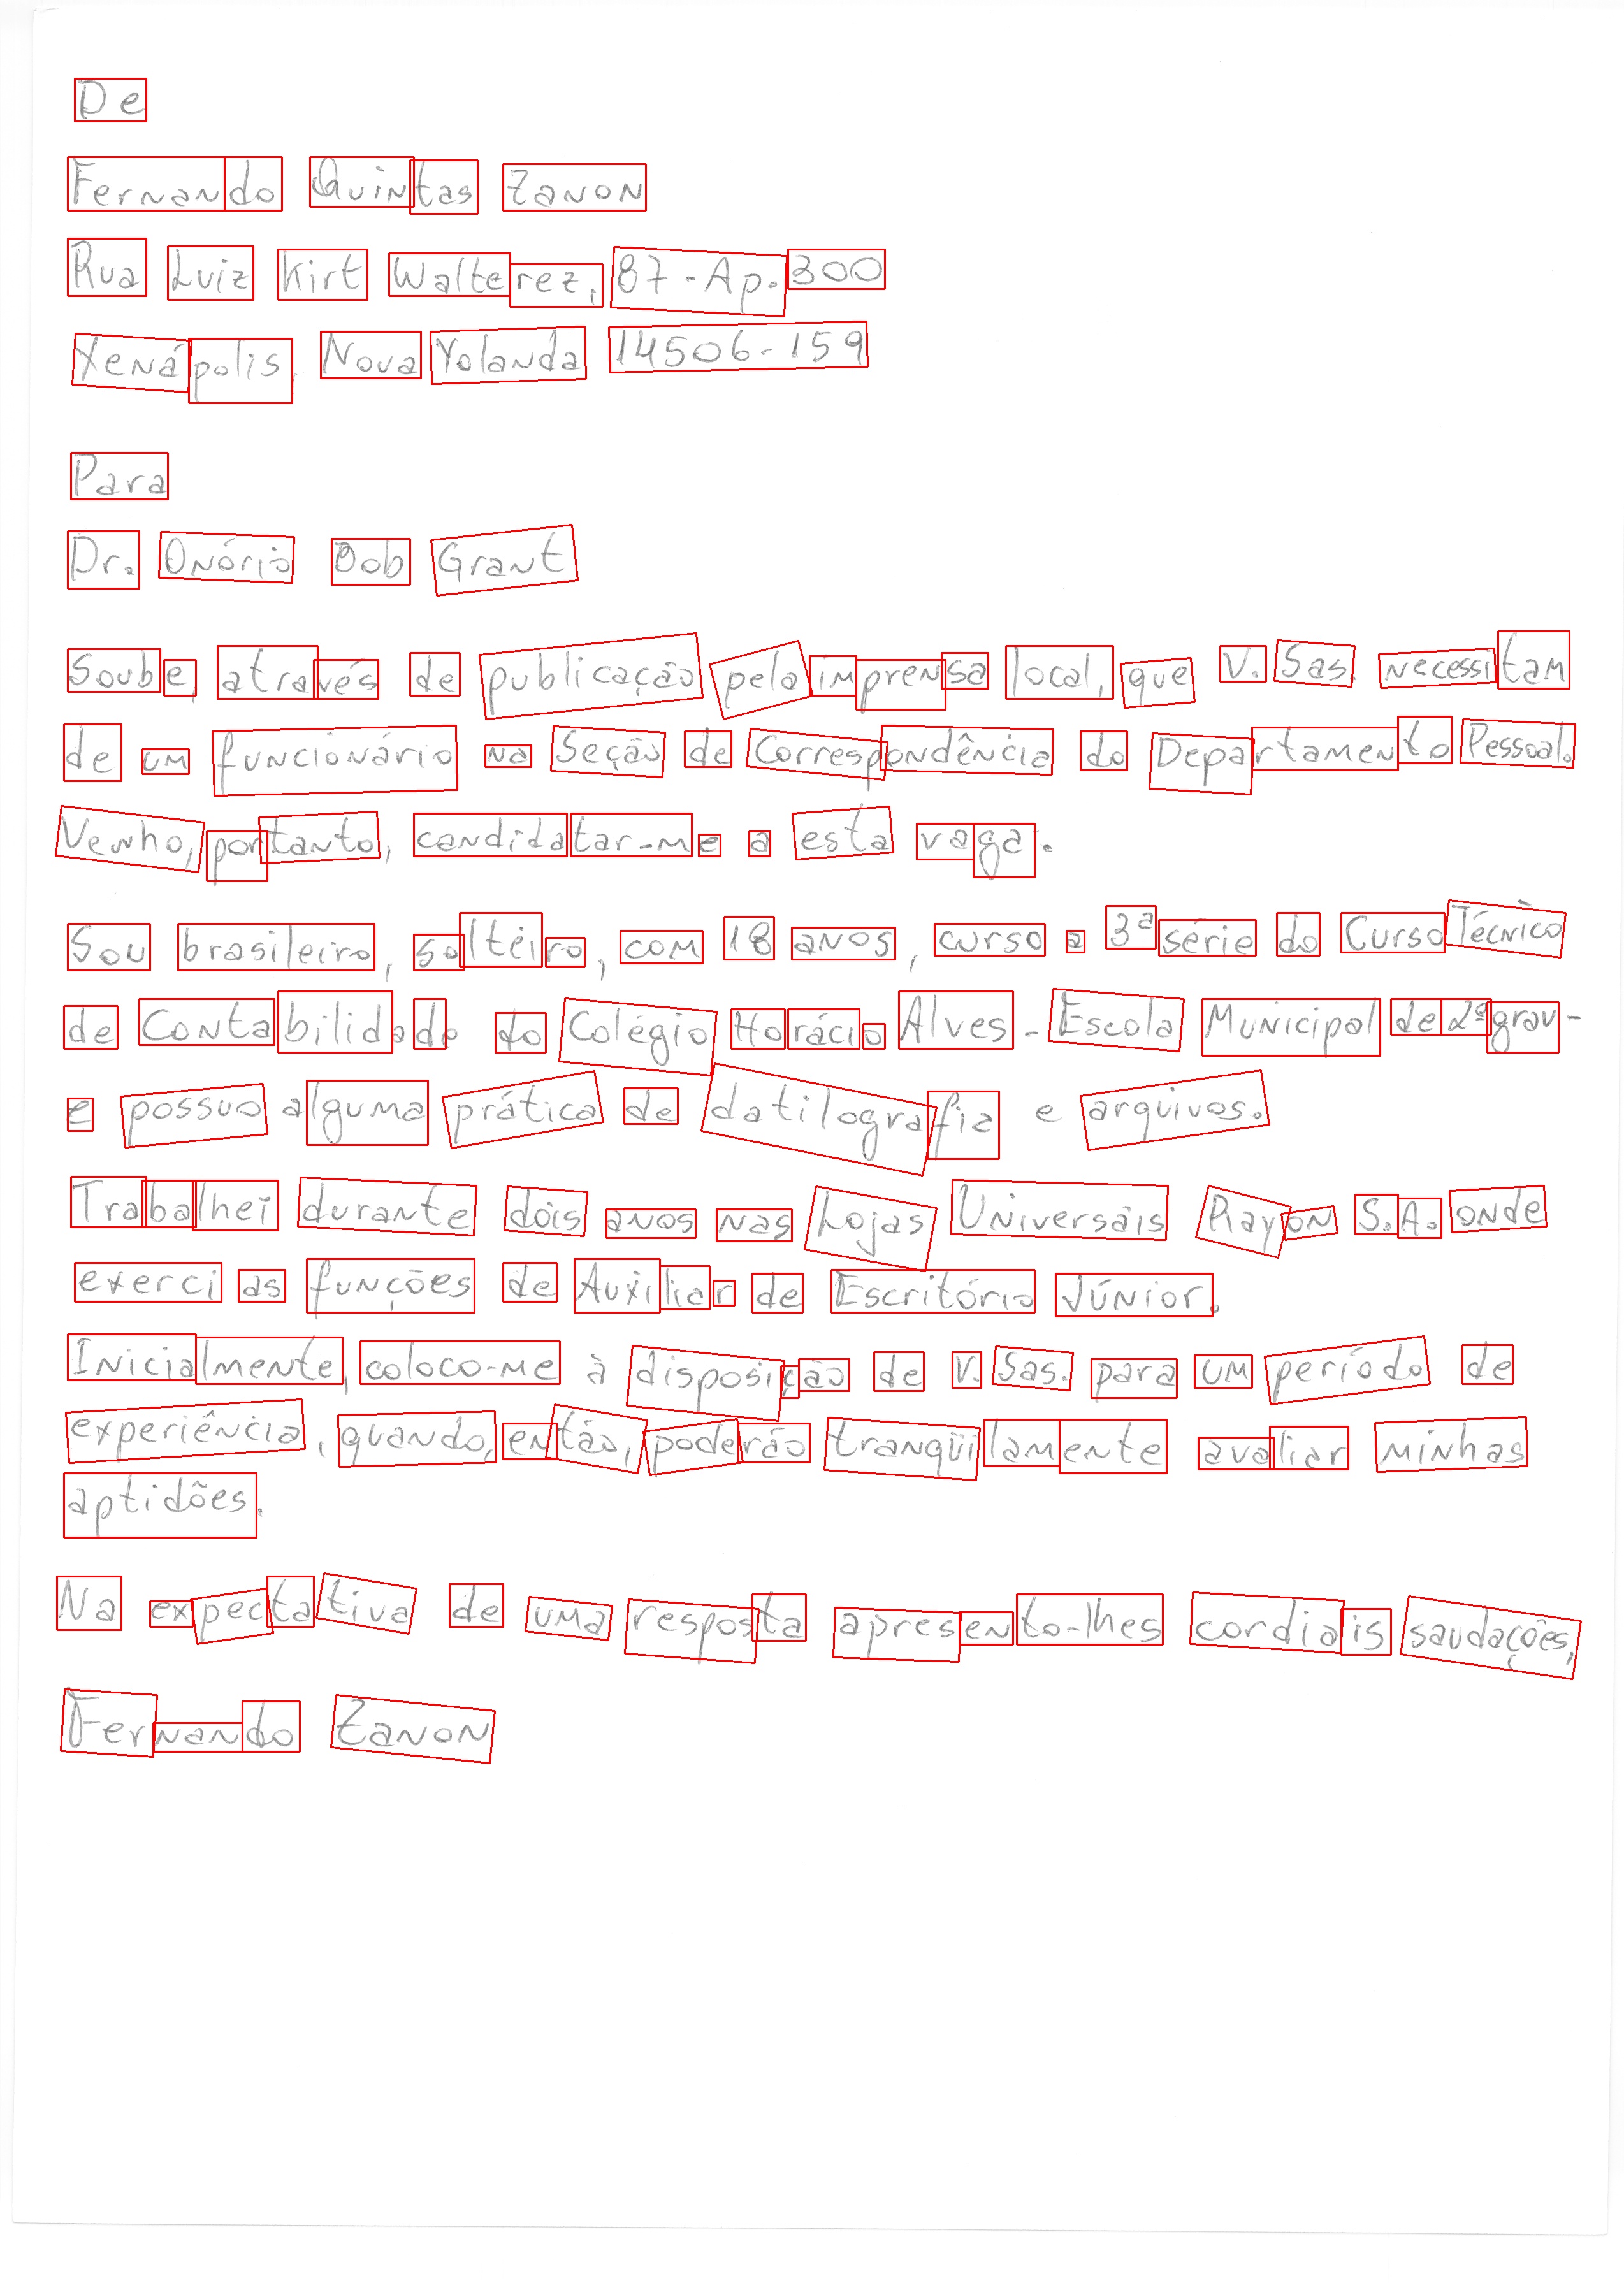 De
Fernando Quintas Zanon
Rua Luiz Kirt Walterez, 87 - Ap. 300
Xenápolis Nova Yolanda 14506-159
Para
Dr. Onório Bob Grant
Soube, através de publicação pela imprensa local, que V. Sas. necessitam
de um funcionário na Seção de Correspondência do Departamento Pessoal.
Venho, portanto, candidatar-me a esta vaga.
Sou brasileiro, solteiro, com 18 anos, curso a 3ª série do Curso Técnico
de Contabilidade do Colégio Horácio Alves - Escola Municipal de 2º grau -
e possuo alguma prática de datilografia e arquivos.
Trabalhei durante dois anos nas Lojas Universais Rayon S.A. onde
exerci as funções de Auxiliar de Escritório Júnior.
Inicialmente, coloco-me à disposição de V. Sas. para um período de
experiência, quando, então, poderão tranqüilamente avaliar minhas
aptidões.
Na expectativa de uma resposta apresento-lhes cordiais saudações,
Fernando Zanon